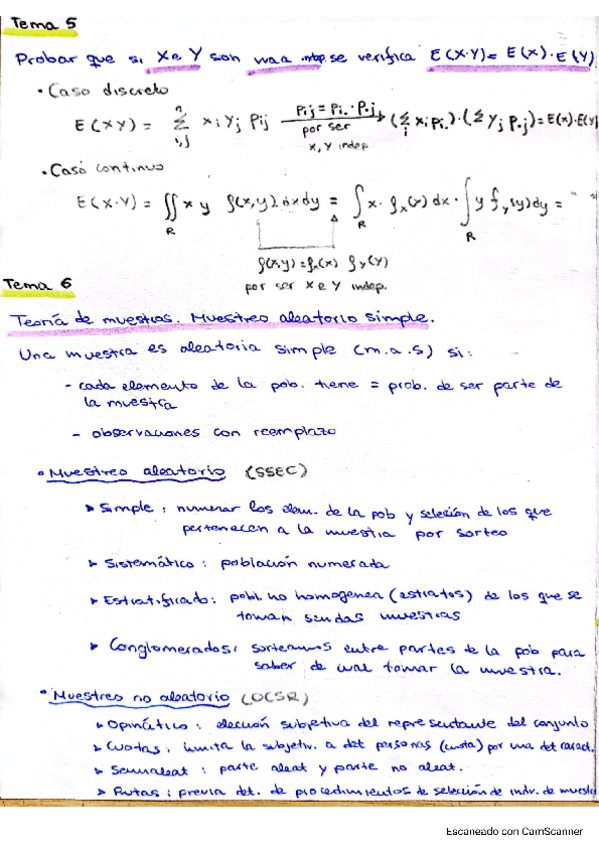 Tema 5
Probar que si X e Y son vvaa indep. se verifica E(X·Y)= E(X)·E(Y)
• Caso discreto
E(XY) = Σ xi yj pij  pij = pi. · p.j  (Σ xi pi.)·(Σ yj p.j) = E(X)·E(Y)
i,j
por ser
x, y indep
• Caso continuo
E(X·Y) = ∬ x y f(x,y) dxdy = ∫ x· fx(x) dx · ∫ y fy(y) dy = " "
R R R
f(x,y) = fx(x) fy(y)
por ser X e Y indep.
Tema 6
Teoría de muestras. Muestreo aleatorio simple.
Una muestra es aleatoria simple (m.a.s) si:
- cada elemento de la pob. tiene = prob. de ser parte de
la muestra
- observaciones con reemplazo
• Muestreo aleatorio (SSEC)
▸ Simple : numerar los elem. de la pob y selección de los que
pertenecen a la muestra por sorteo
▸ Sistemático : población numerada
▸ Estratificado : pobl. no homogenea (estratos) de los que se
toman sendas muestras
▸ Conglomerados : sorteamos entre partes de la pob para
saber de cual tomar la muestra.
• Muestreo no aleatorio (OCSR)
▸ Opinático : elección subjetiva del representante del conjunto
▸ Cuotas : limita la subjetiv. a det personas (cuota) por una det caract.
▸ Semialeat : parte aleat y parte no aleat.
▸ Rutas : previa det. de procedimientos de selección de indv. de muestra
Escaneado con CamScanner